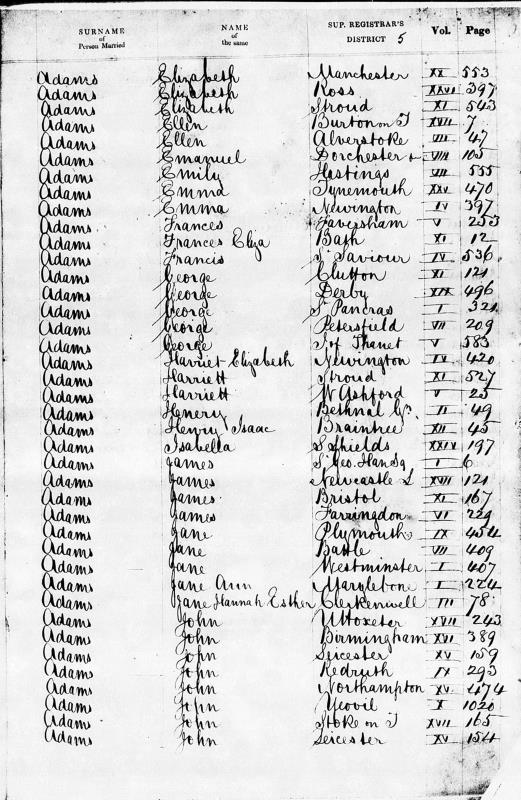 SURNAME of Person Married NAME of the same SUP. REGISTRAR'S DISTRICT 5 Vol. Page
Adams Elizabeth Manchester XX 553
Adams Elizabeth Ross XXVI 397
Adams Elizabeth Stroud XI 543
Adams Ellen Burton on T XVII 7
Adams Ellen Alverstoke VII 47
Adams Emanuel Dorchester & VIII 105
Adams Emily Hastings VII 555
Adams Emma Tynemouth XXV 470
Adams Emma Newington IV 397
Adams Frances Faversham V 253
Adams Frances Eliza Bath XI 12
Adams Francis St Saviour IV 536
Adams George Clutton XI 121
Adams George Derby XIX 496
Adams George St Pancras I 321
Adams George Petersfield VII 209
Adams George I of Thanet V 583
Adams Harriet Elizabeth Newington IV 420
Adams Harriett Stroud XI 527
Adams Harriett W Ashford V 25
Adams Henery Bethnal Gn. II 49
Adams Henry Isaac Braintree XII 45
Adams Isabella S Shields XXIV 197
Adams James St Geo. Han Sq I 6
Adams James Newcastle L XVII 121
Adams James Bristol XI 167
Adams James Farringdon VI 229
Adams Jane Plymouth IX 454
Adams Jane Battle VII 409
Adams Jane Westminster I 407
Adams Jane Ann Marylebone I 224
Adams Jane Hannah Esther Clerkenwell III 78
Adams John Uttoxeter XVII 243
Adams John Birmingham XVI 389
Adams John Leicester XV 159
Adams John Redruth IX 293
Adams John Northampton XV 474
Adams John Yeovil X 1020
Adams John Stoke on T XVII 165
Adams John Leicester XV 154